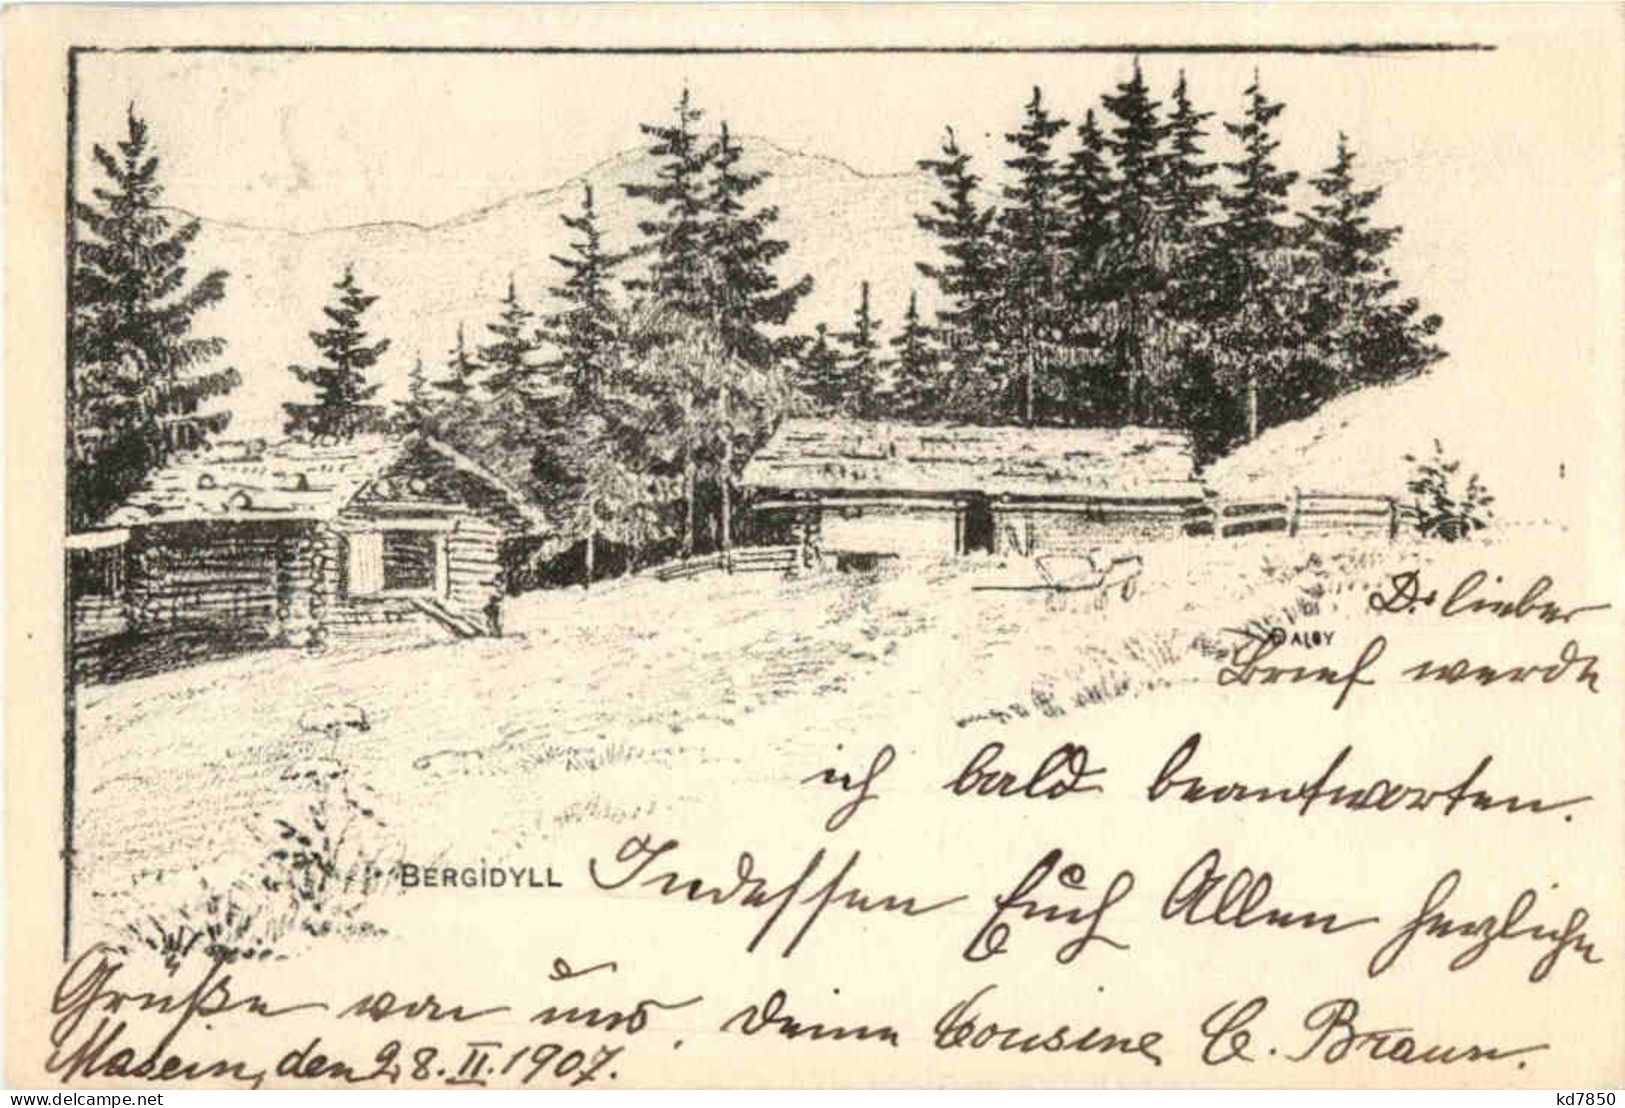 D. lieber
DALBY
Brief werde
ich bald beantworten.
BERGIDYLL Indessen Euch Allen herzliche
Grüße von uns. Deine Cousine C. Braun.
Masein, den 28. II. 1907.
delcampe.net
kd7850